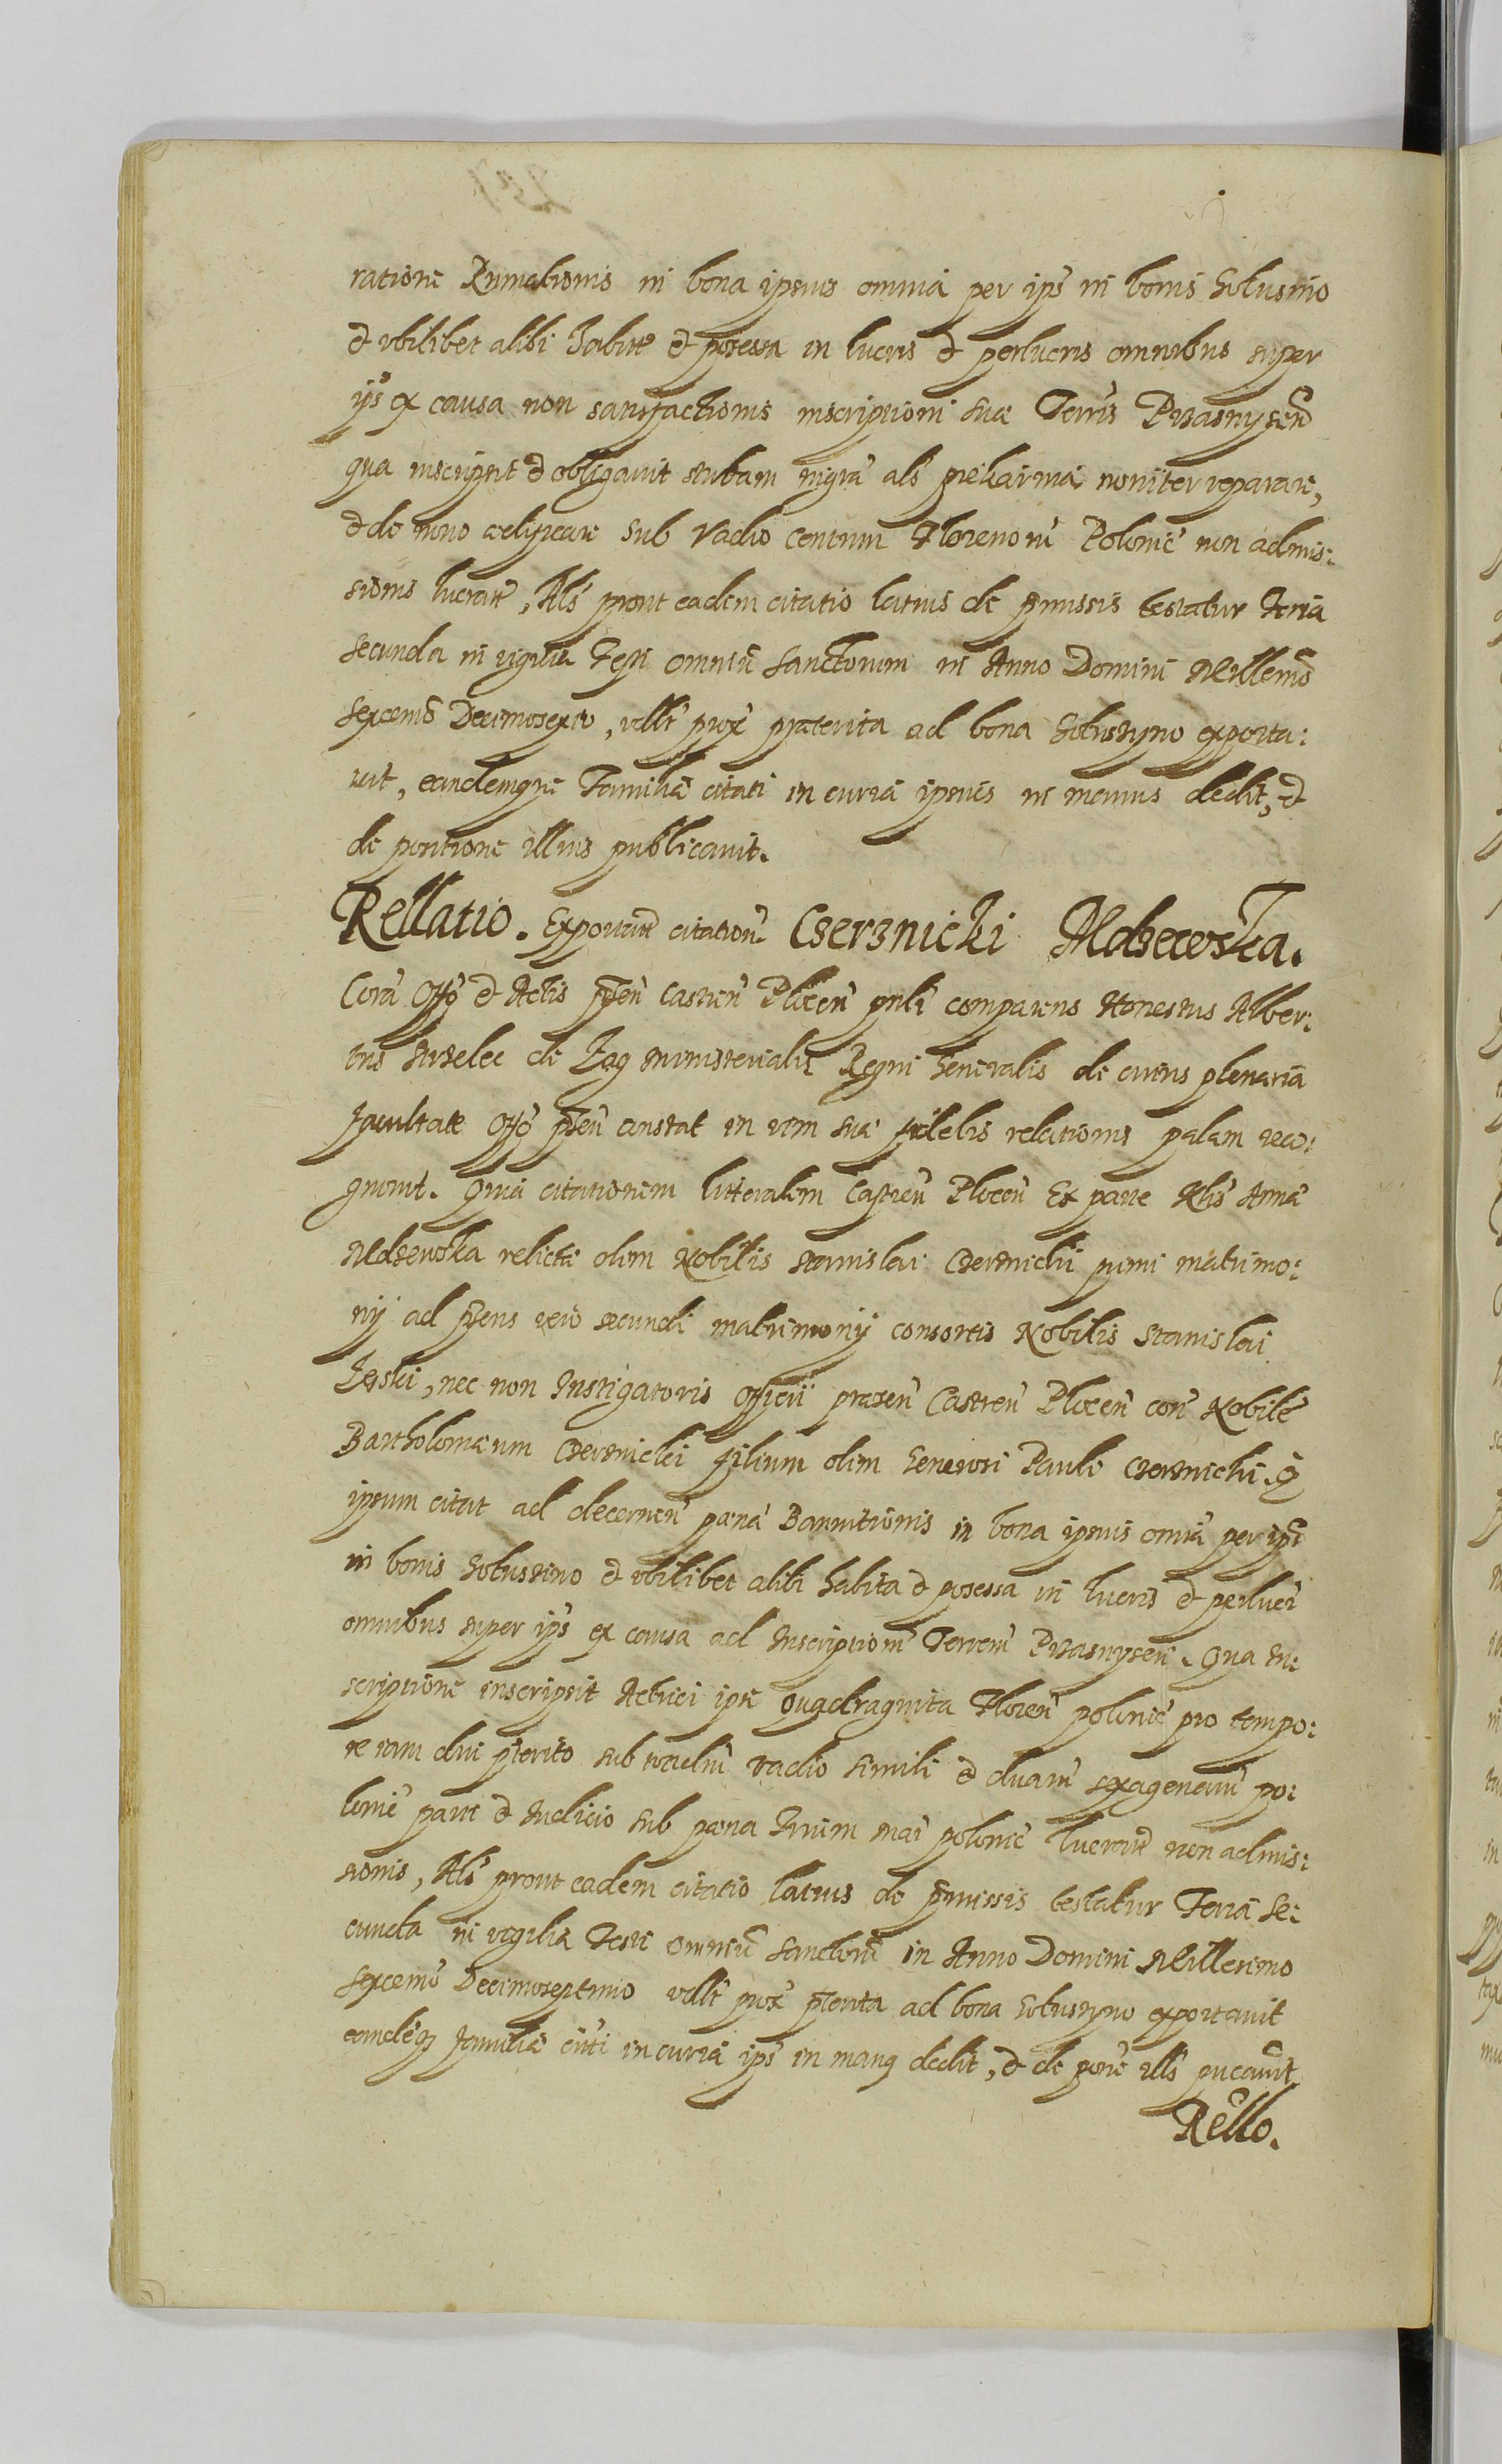 ratione Rumationis in bona ipsius omnia per ips in bonis Solusino
et ubilibet alibi habita et posessa in lucris et perlucris omnibus super
ips ex causa non satisfactionis inscriptioni suae Terris Prasnysen
qua inscripsit et obligavit stubam nigra als piekarnia noviter reparare,
et de novo aedificare sub vadio centum Florenoru Polonic non admis:
sionis lucrate, Als prout eadem citatio latius de pmissis testatur Feria
secunda in vigilia Festi omniu Sanctorum in Anno Domini Millemo
Sexcemo Decimosexto, ultt prox praeterita ad bona Solustyno exporta:
vit, eandemque Familia citati in curia ipsius in manus dedit, et
de positione illius publicavit.
Rellatio. Exportate citation Cserznicki Mdzewska.
Cora Offo et Actis pnten Castren Plocen pnli comparens Honestus Alber:
tus Strzelec de Zag ministerialis Regni Generalis de cuius plenaria
facultate Offo pnten constat in vim sua fidelis relationis palam reco:
gnovit. Quia citationem litteralem Castren Plocen Ex parte Nlis Anna
Mdzewska relicta olim Nobilis Stanislai Czerznicki primi matrimo:
nij ad pns vero secundi matrimonij consortis Nobilis Stanislai
Zeski, nec non Instigatoris Officii praesen Castren Plocen con Nobile
Bartholomaeum Czerznicki filium olim Generosi Pauli Czerznicki. q
ipsum citat ad decernen paena Bannitionis in bona ipsius omia per ips
in bonis Solustino et ubilibet alibi habita et posessa in lucris et perlucri
omnibus super ips ex causa ad Inscription Terren Prasnysen. Qua In:
scriptione inscripsit Actrici ipse Quadraginta Floren polonic pro tempo:
re iam diu pterito sub vadio simili et duaru sexagenaru po:
lonic parti et Iudicio sub paena Trium mar polonic lucrate non admis:
sionis, Als prout eadem citatio latius de pmissis testatur Feria Se:
cunda in vigilia Festi Omniu Sanctoru in Anno Domini Millesimo
Sexcemo Decimoseptimo ultt prox pterita ad bona Solustyno exportavit
eandeq familia citti in curia ips in manq dedit, et de posne ills pucavit
Rello.